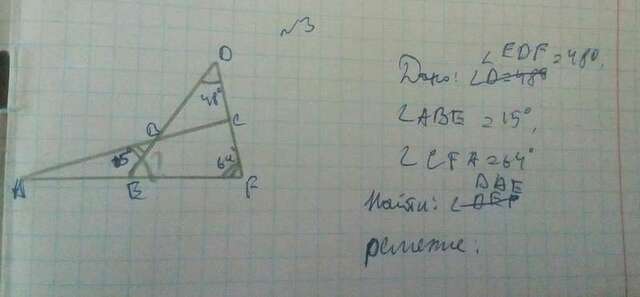 №3
D
48°
B
C
15°
64°
A
E
F
Дано: ∠EDF = 48°,
∠D=48°
∠ABE = 15°,
∠CFA = 64°
BAE
Найти: ∠DEF
решение: